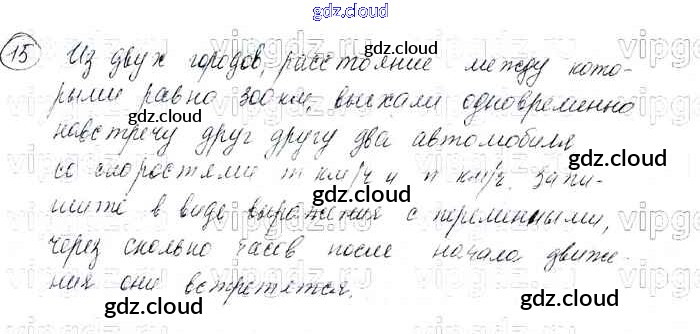 gdz.cloud
15 Из двух городов, расстояние между кото-
рыми равно 300 км выехали одновременно
навстречу друг другу два автомобиля
со скоростями m км/ч и n км/ч. Запи-
шите в виде выражения с переменными,
через сколько часов после начала движе-
ния они встретятся.
gdz.cloud
gdz.cloud
gdz.cloud
gdz.cloud
gdz.cloud
gdz.cloud
gdz.cloud
gdz.cloud
gdz.cloud